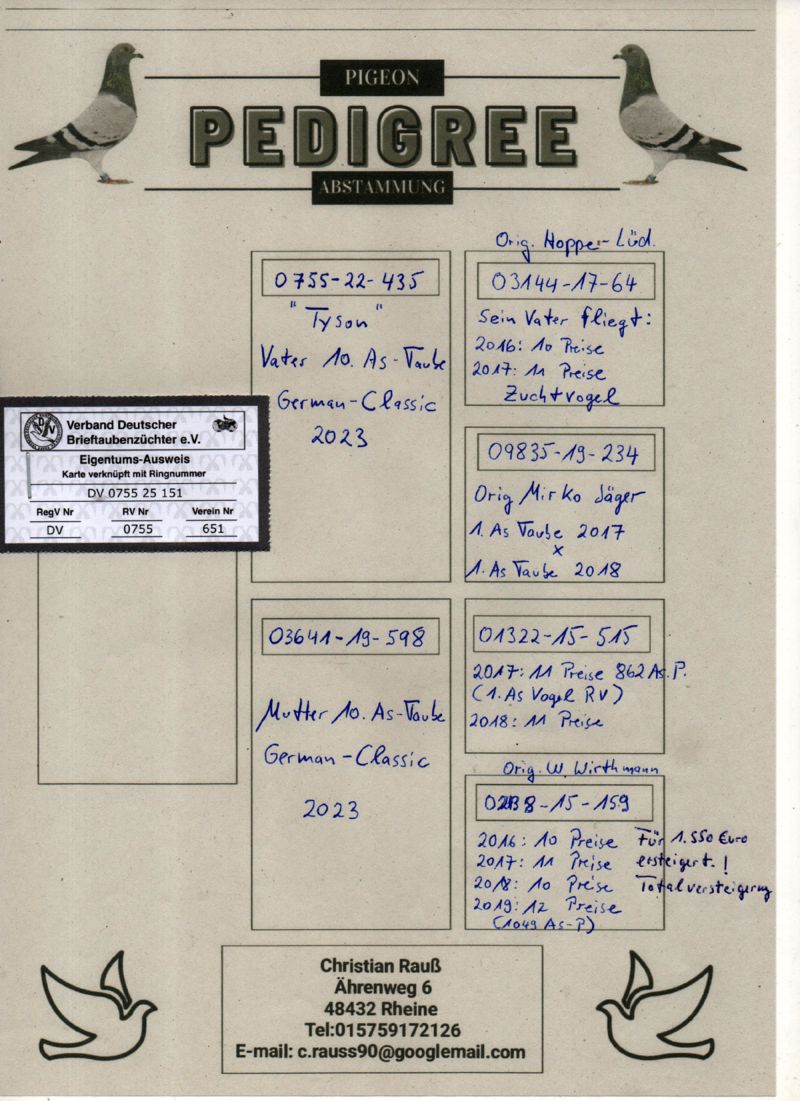 PIGEON
PEDIGREE
ABSTAMMUNG
Verband Deutscher
Brieftaubenzüchter e.V.
Eigentums-Ausweis
Karte verknüpft mit Ringnummer
DV 0755 25 151
RegV Nr RV Nr Verein Nr
DV 0755 651
0755-22-435
"Tyson"
Vater 10. As-Taube
German-Classic
2023
03641-19-598
Mutter 10. As-Taube
German-Classic
2023
Orig. Hoppe-Lüd.
03144-17-64
Sein Vater fliegt:
2016: 10 Preise
2017: 11 Preise
Zuchtvogel
09835-19-234
Orig Mirko Jäger
1. As Taube 2017
x
1. As Taube 2018
01322-15-515
2017: 11 Preise 862 As.P.
(1. As Vogel RV)
2018: 11 Preise
Orig. W. Wirthmann
8-15-159
2016: 10 Preise Für 1.550 Euro
2017: 11 Preise ersteigert.!
2018: 10 Preise Totalversteigerung
2019: 12 Preise
(1049 As-P)
Christian Rauß
Ährenweg 6
48432 Rheine
Tel:015759172126
E-mail: c.rauss90@googlemail.com